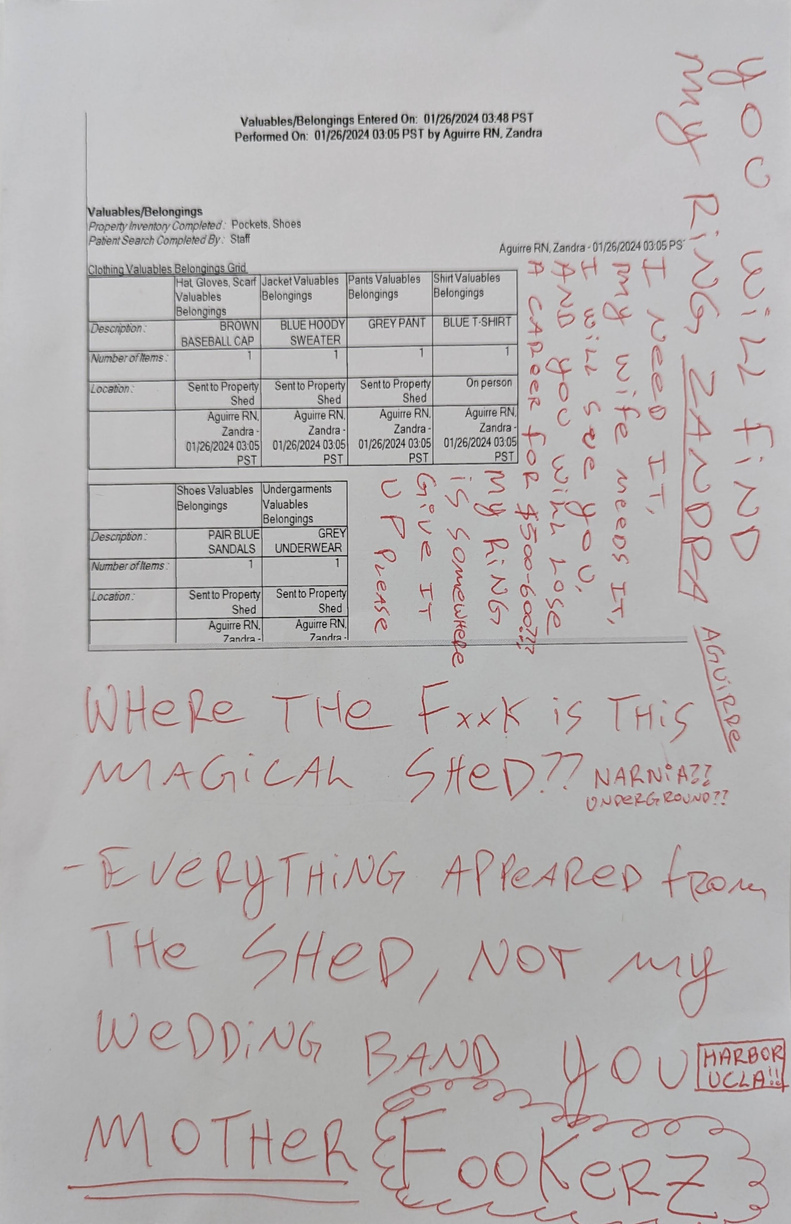 Valuables/Belongings Entered On: 01/26/2024 03:48 PST
Performed On: 01/26/2024 03:05 PST by Aguirre RN, Zandra
Valuables/Belongings
Property Inventory Completed: Pockets, Shoes
Patient Search Completed By: Staff
Aguirre RN, Zandra - 01/26/2024 03:05 PS
Clothing Valuables Belongings Grid
Hat, Gloves, Scarf Valuables Belongings
Jacket Valuables Belongings
Pants Valuables Belongings
Shirt Valuables Belongings
Description: BROWN BASEBALL CAP BLUE HOODY SWEATER GREY PANT BLUE T-SHIRT
Number of Items: 1 1 1 1
Location: Sent to Property Shed Sent to Property Shed Sent to Property Shed On person
Aguirre RN, Zandra - 01/26/2024 03:05 PST Aguirre RN, Zandra - 01/26/2024 03:05 PST Aguirre RN, Zandra - 01/26/2024 03:05 PST Aguirre RN, Zandra - 01/26/2024 03:05 PST
Shoes Valuables Belongings
Undergarments Valuables Belongings
Description: PAIR BLUE SANDALS GREY UNDERWEAR
Number of Items: 1 1
Location: Sent to Property Shed Sent to Property Shed
Aguirre RN, Zandra - Aguirre RN, Zandra -
YOU WILL FIND
MY RING ZANDRA AGUIRRE
I NEED IT,
MY WIFE NEEDS IT,
I WILL SEE YOU,
AND YOU WILL LOSE
A CAREER FOR $500-600???
MY RING
IS SOMEWHERE
GIVE IT
UP PLEASE
WHERE THE FxxK IS THIS
MAGICAL SHED?? NARNIA??
UNDERGROUND??
- EVERYTHING APPEARED FROM
THE SHED, NOT MY
WEDDING BAND YOU HARBOR
UCLA!!
MOTHER FOOKERZ